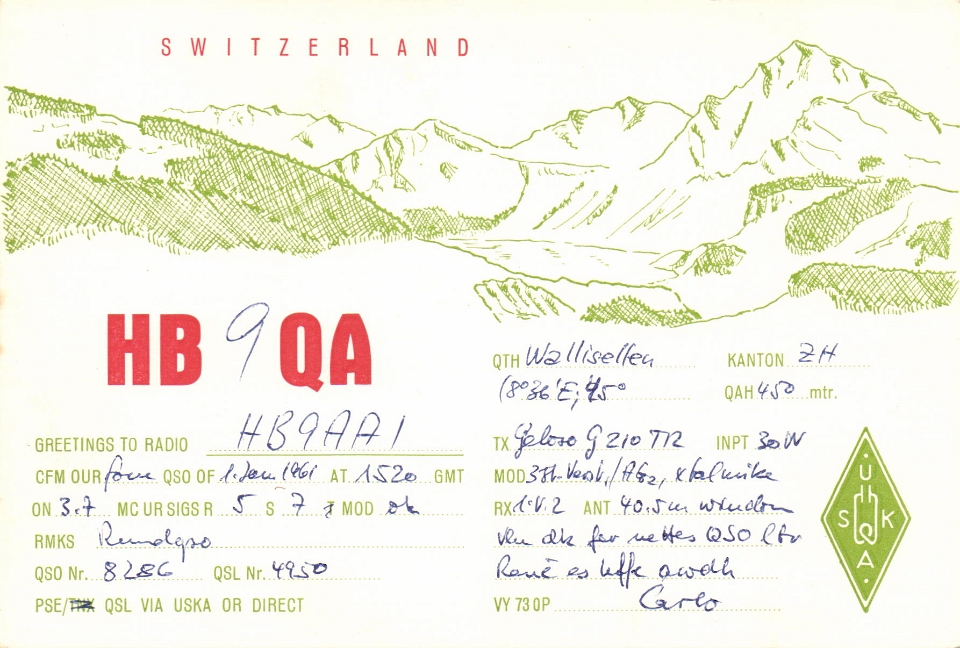 SWITZERLAND
HB 9 QA
QTH Wallisellen KANTON ZH
(8°36'E; 45° QAH 450 mtr.
GREETINGS TO RADIO HB9AAI
CFM OUR fone QSO OF 1. Jan 1961 AT 1520 GMT
ON 3.7 MC UR SIGS R 5 S 7 MOD ok
RMKS Rundqso
QSO Nr. 8286 QSL Nr. 4950
PSE/TNX QSL VIA USKA OR DIRECT
TX Geloso G 210 TR INPT 30W
MOD 3st. Verst./AG2, xtalmike
RX 1-V-2 ANT 40.5m windom
vln dk fer nettes QSO lbr
René es hffe awdh
VY 73 OP Carlo
U
S K
A